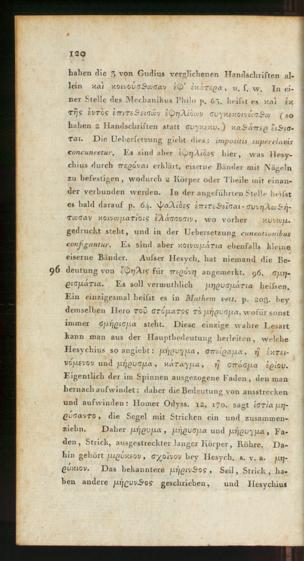 120
haben die 3 von Gudius verglichenen Handschriften al-
lein καὶ κοινούσθωσαν ἐφ' ἑκάτερα, u. s. w. In ei-
ner Stelle des Mechanikus Philo p. 63. heifst es καὶ ἐκ
τῆς ἐντὸς ἐπιτιθεισῶν ἐφηλίδων συγκεκοινώσθω (so
haben 2 Handschriften statt συγκεκν.) καθάπερ εἴθισ-
ται. Die Uebersetzung giebt dies: impositis superclavis
concunectur. Es sind aber ἐφηλίδες hier, was Hesy-
chius durch περόναι erklärt, eiserne Bänder mit Nägeln
zu befestigen, wodurch 2 Körper oder Theile mit einan-
der verbunden werden. In der angeführten Stelle heifst
es bald darauf p. 64. ψαλίδες ἐπιτεθεῖσαι συνηλωθή-
τωσαν κοινωματίοις ἐλάσσοσιν, wo vorher
gedruckt steht, und in der Uebersetzung cuneationibus
configantur. Es sind aber κοινωμάτια ebenfalls kleine
eiserne Bänder. Aufser Hesych, hat niemand die Be-
96 deutung von ἔφηλις für περόνη angemerkt. 96. σμη-
ρισμάτια. Es soll vermuthlich μηρυσμάτια heifsen.
Ein einzigesmal heifst es in Mathem vett. p. 203. bey
demselben Hero τοῦ στόματος τὸ μήρυσμα, wofür sonst
immer σμήρισμα steht. Diese einzige wahre Lesart
kann man aus der Hauptbedeutung herleiten, welche
Hesychius so angiebt: μήρυγμα, σπείραμα, ἢ ἐκτει-
νόμενον und μήρυσμα, κάταγμα, ἢ σπάσμα ἐρίου.
Eigentlich der im Spinnen ausgezogene Faden, den man
hernach aufwindet: daher die Bedeutung von ausstrecken
und aufwinden: Homer Odyss. 12, 170. sagt ἱστία μη-
ρύσαντο, die Segel mit Stricken ein und zusammen-
ziehn. Daher μήρυμα, μήρυσμα und μήρυγμα, Fa-
den, Strick, ausgestreckter langer Körper, Röhre. Da-
hin gehört μιρύκιον, σχοῖνον bey Hesych. s. v. a. μη-
ρύκιον. Das bekanntere μήρινθος, Seil, Strick, ha-
ben andere μήρυνθος geschrieben, und Hesychius